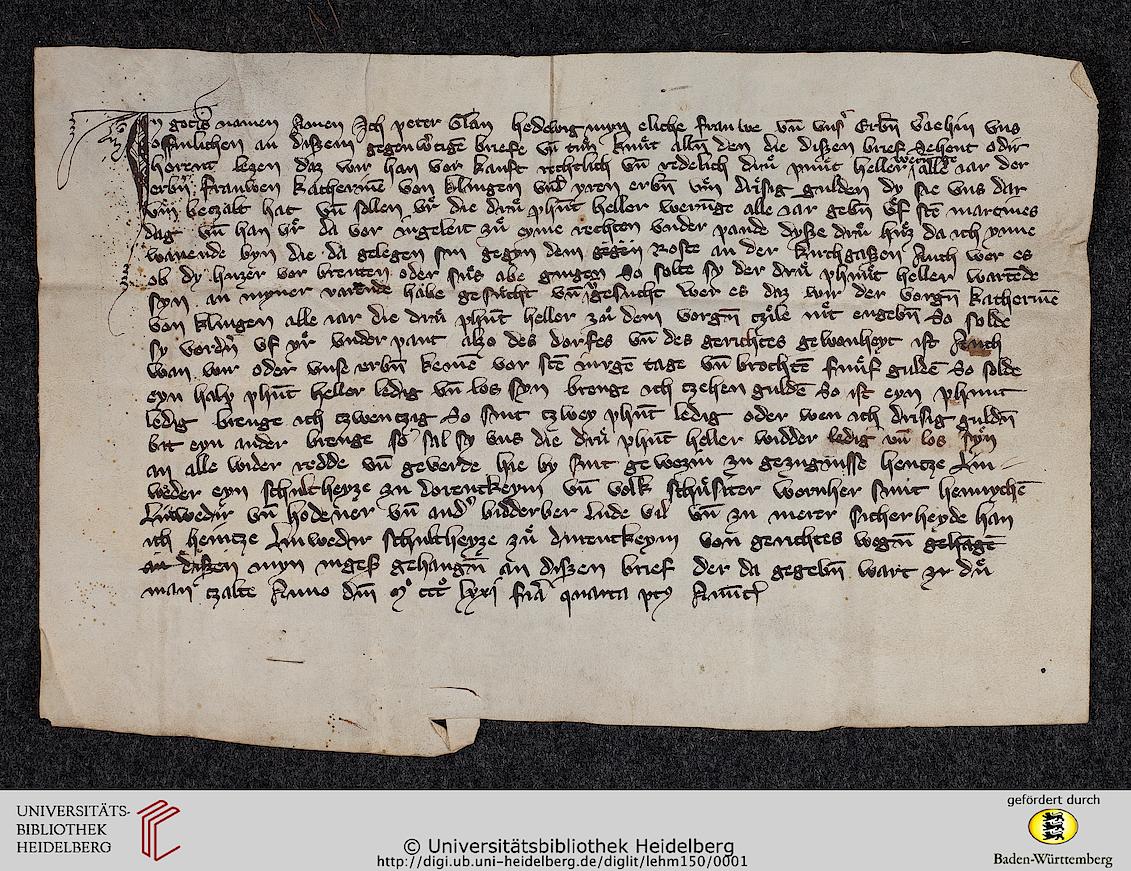 In gotis namen Amen Ich peter Glan hedewig myn eliche frauwe vn̄ vns' Erbn̄ v'iehin vns
offinlichen an dissem gegenw'tigē briefe vn̄ tůn kunt alln̄ den die dissen brief Sehent odir
horent lezen daz wir han vor kauft rechtlich vn̄ redelich drů punt heller werunge alle iar der
erbn̄ frauwen Katherinē von klingen vnd yren erbn̄ vm̄ drisig gulden dy sie vns dar
vm̄ beczalt hat vn̄ sollen wr̄ die drů phūt heller werūge alle iar gebn̄ vf stē martines
dag vn̄ han wr̄ da vor ingeleit zů eyme rechten vnder pande dysse drů huz da ich ynne
wanende byn die da gelegen sin gegyn dem gegin Roste an der kirchgassen Auch wer es
ob dy huzer vor brenten oder sus abe gingen So solte sy der drů phūt heller wartēde
syn an myner varēnde habe gesucht vn̄ vngesucht wer es daz wir der vorgn̄ katherinē
von klingen alle iar die drů phūt heller zů dem vorgn̄ czile nit engebn̄ So solde
sy vordn̄ vf yr vnder pant alzo des dorfes vn̄ des gerichtes gewonheyt ist Auch
wan wir oder vnse erbn̄ kemē vor stē iurgē tage vn̄ brochtē funf guldē So solde
eyn halp phūt heller ledig vn̄ los syn brenge ich czehen guldē So ist eyn phunt
ledig brenge ich czwenczig So sint czwey phūt ledig oder wen ich drisig guldn̄
bit eyn ander brenge so sal sy vns die drů phūt heller widder ledig vn̄ los syn
an alle wider redde vn̄ geverde hie by sint gewezin zu gezugnisse hentze Lin-
weder eyn schultheyze zu dorenkeym vn̄ volk schusiter wernher smit hennychē
Linwedir vn̄ hodener vn̄ and' bidderber lude vil vn̄ zu merer sicherheyde han
ich heintze Linwedir schultheyze zů durenkeym von gerichtes wegn̄ gehāgē
an dissen myn ingeß gehangn̄ an dissen brief der da gegebn̄ wart zu dů
man czalte Anno dn̄i mº cccº lxxi fria quarta
UNIVERSITÄTS-
BIBLIOTHEK
HEIDELBERG
© Universitätsbibliothek Heidelberg
http://digi.ub.uni-heidelberg.de/diglit/lehm150/0001
gefördert durch
Baden-Württemberg